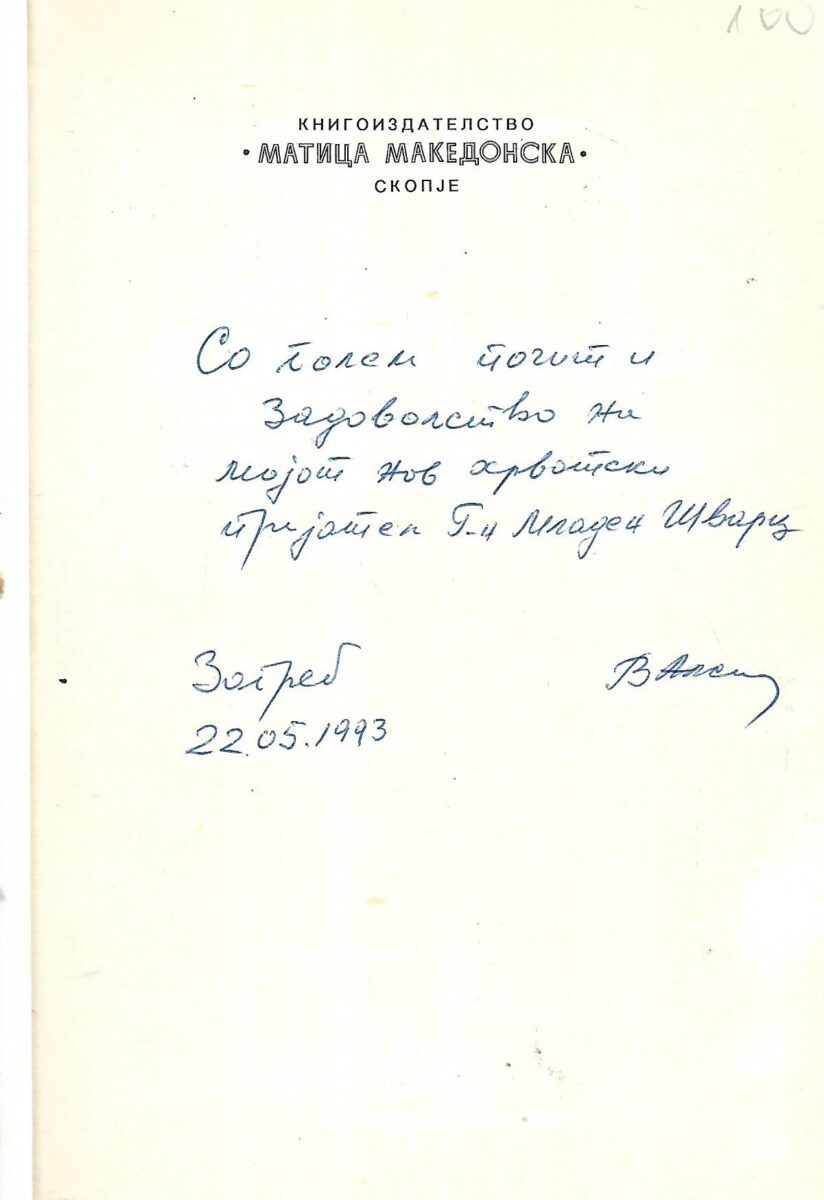 100
КНИГОИЗДАТЕЛСТВО
• МАТИЦА МАКЕДОНСКА •
СКОПЈЕ
Со голем почит и
Задоволство на
мојот нов хрватски
пријател Г-н Младен Шварц
Загреб
22.05.1993